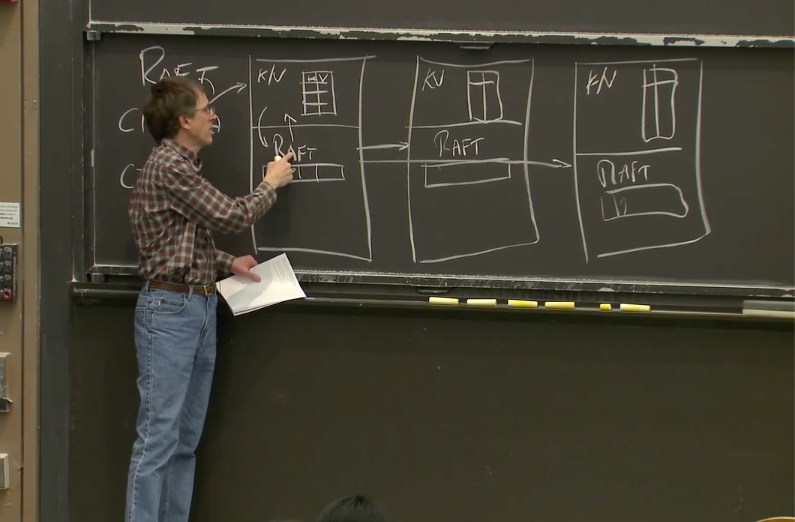 RAFT
K/V
KV
RAFT
KV
RAFT
K/V
RAFT